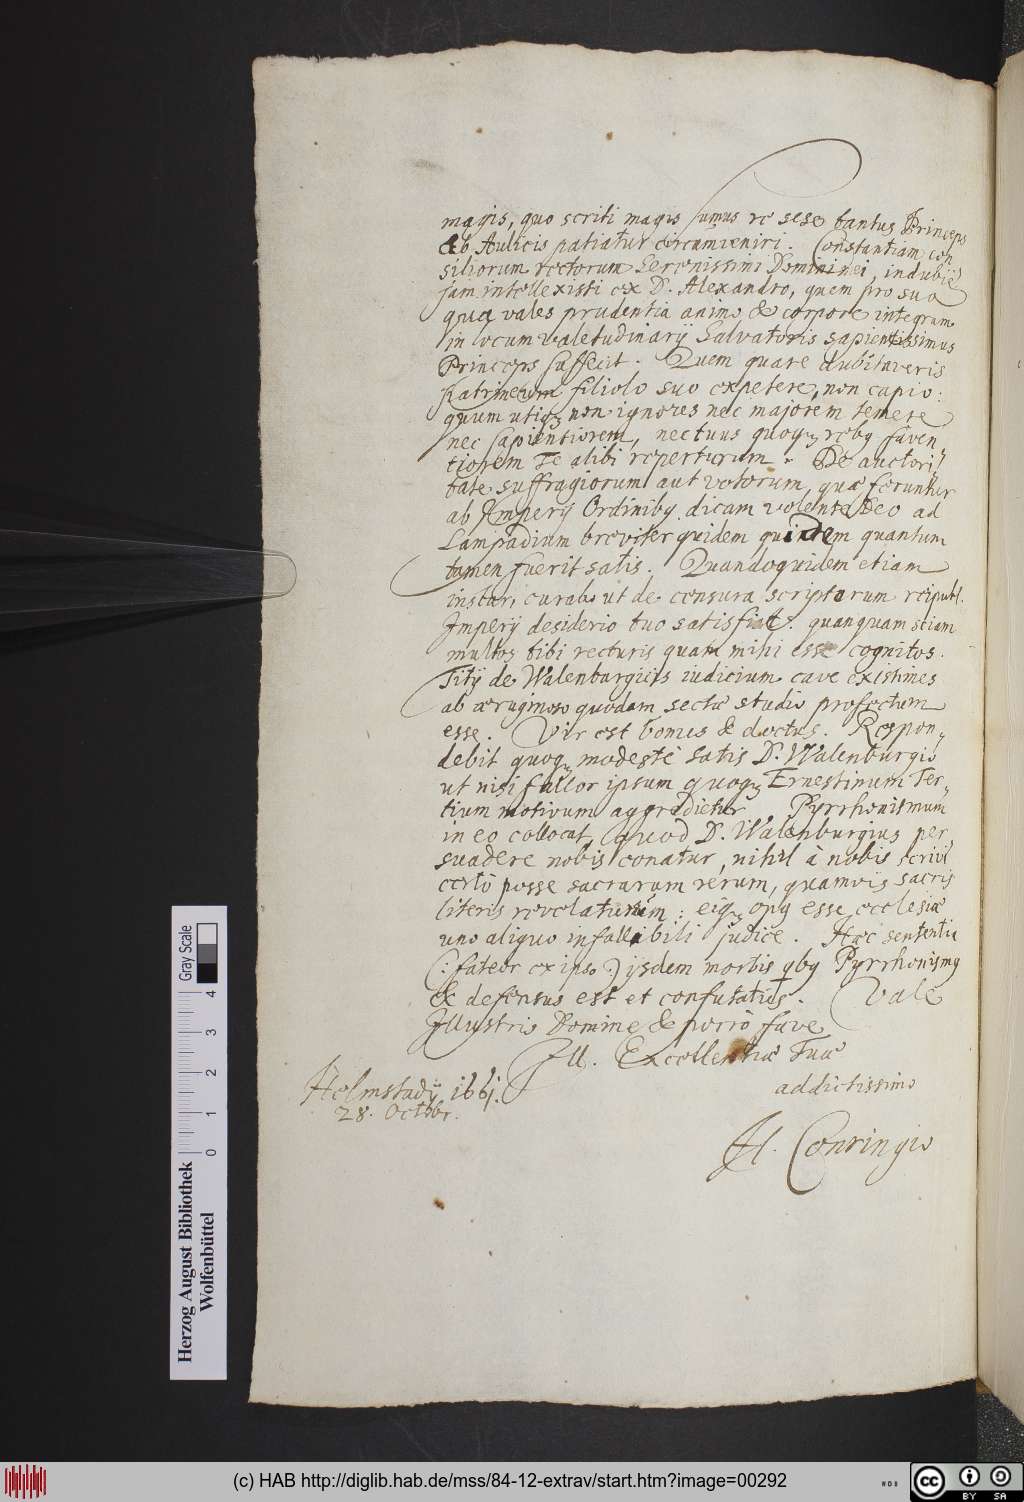 magis, quo scriti magis sumus rc sese tantus Princeps
ab Aulicis patiatur circumveniri. Constantiam con
siliorum rectorum Serenissimi Domini mei, indubie
jam intellexisti ex D. Alexandro, quem pro sua
qua vales prudentia animo & corpore integrum
in locum valetudinarij Salvatoris sapientissimus
Princeps suffecit. Quem quare dubitaveris
filiolo suo expetere, non capio:
quum utiqȝ non ignores nec majorem temere
nec sapientiorem, nec tuus quoqȝ rebq faven
tiorem Te alibi reperturum. De auctori
tate suffragiorum aut votorum, quæ feruntur
ab Imperij Ordinibq dicam volente Deo ad
Lampadium breviter quidem quantum
tamen fuerit satis. Quandoquidem etiam
instar, curabo ut de censura scriptorum reipubl.
Imperij desiderio tuo satisfiat. quanquam etiam
multos tibi recturis quam mihi esse cognitos.
Titij de Walenburgiis iudicium cave existimes
ab æruginoso quodam sectæ studio profectum
esse. Vir est bonus & doctus. Respon„
debit quoqȝ modestè satis D. Walenburgio
ut nisi fallor ipsum quoqȝ Ernestinum Ter„
tium motivum aggredietur. Pyrrhonismum
in eo collocat, quod D. Walenburgius per
suadere nobis conatur, nihil à nobis sciri
certò posse sacrarum rerum, quamvis sacris
literis revelatarum: eiqȝ opq esse ecclesiæ
uno aliquo infallibili judice. Hæc sententia
(: fateor ex ipso :) ijsdem morbis qbq Pyrrhonismq
& defensus est et confutatus. Vale
Illustris Domine & porrò fave
Ill. Excellentiæ Tuæ
addictissimo
Helmstadij 1661.
28. Octobr.
H. Conringio
Herzog August Bibliothek
Wolfenbüttel
Gray Scale
0 1 2 3 4
(c) HAB http://diglib.hab.de/mss/84-12-extrav/start.htm?image=00292
cc BY SA